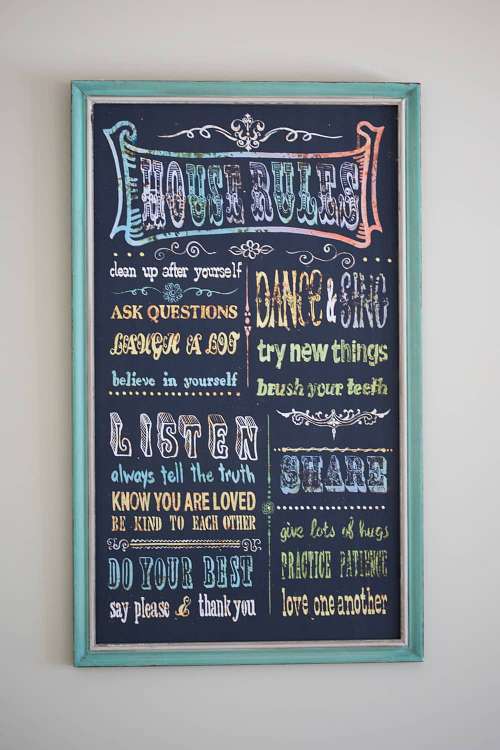 HOUSE RULES
clean up after yourself
ASK QUESTIONS
LAUGH A LOT
believe in yourself
DANCE & SING
try new things
brush your teeth
LISTEN
always tell the truth
KNOW YOU ARE LOVED
BE KIND TO EACH OTHER
DO YOUR BEST
say please & thank you
SHARE
give lots of hugs
PRACTICE PATIENCE
love one another